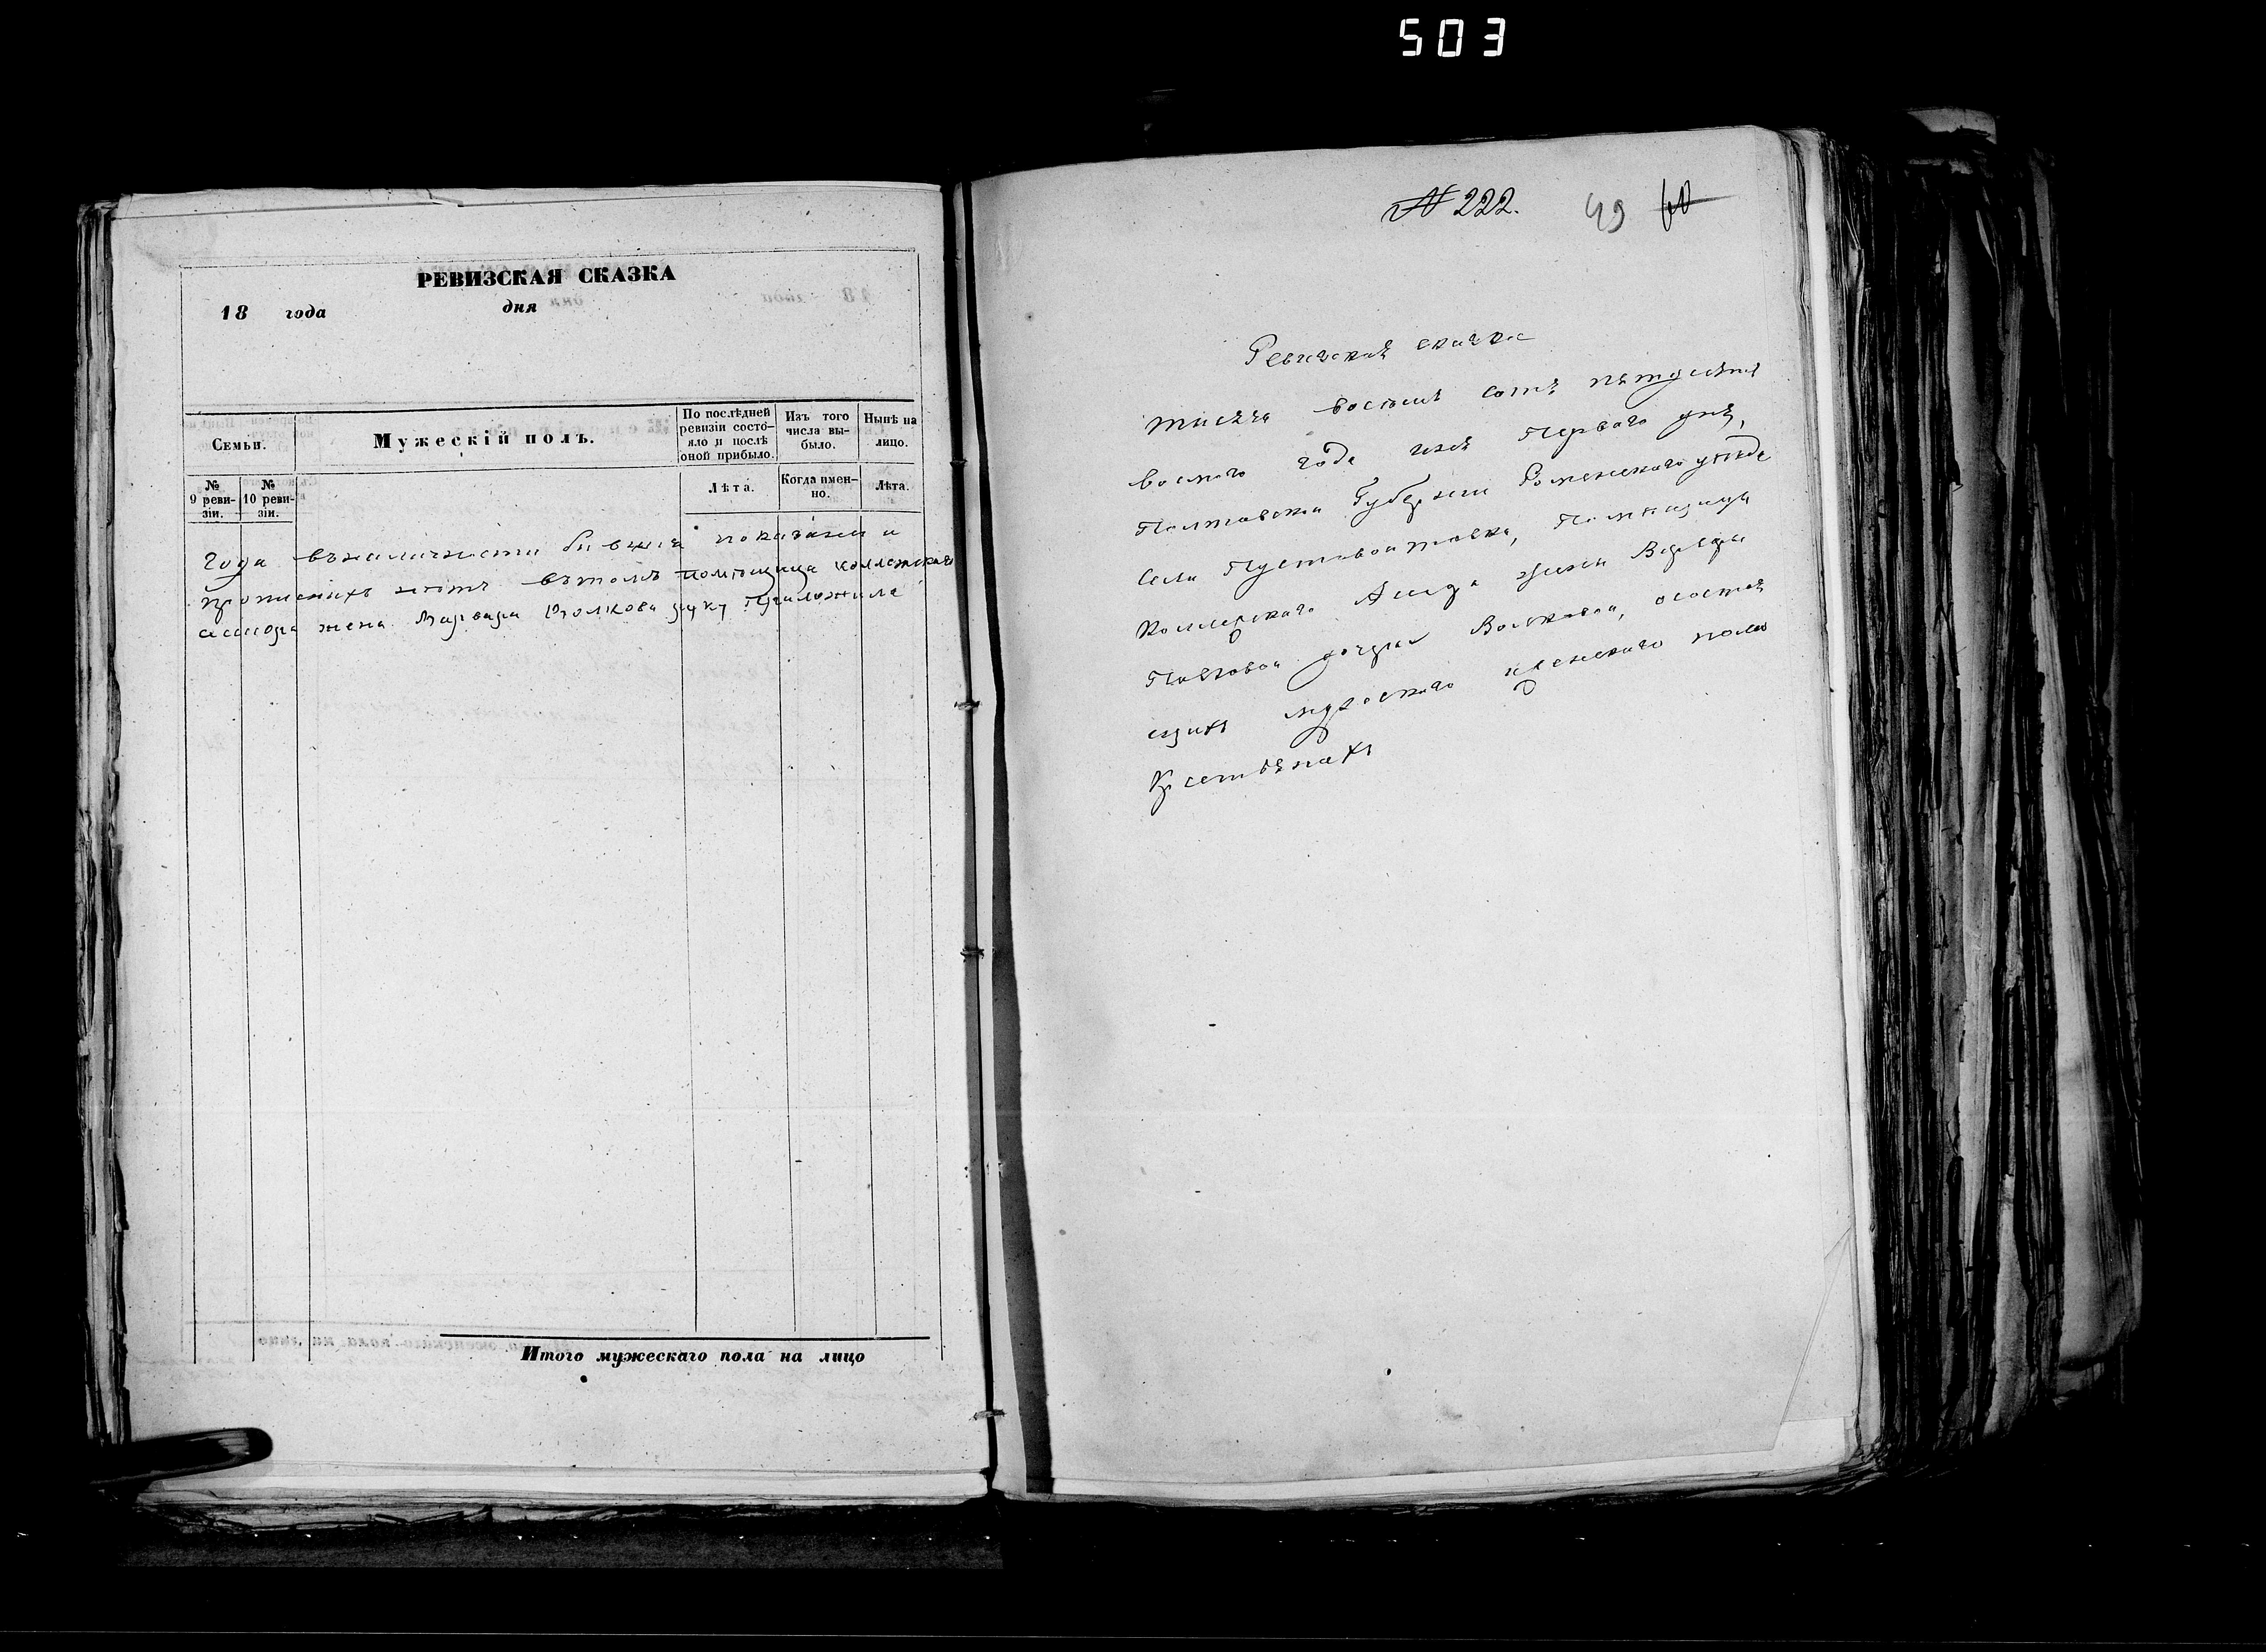 503
РЕВИЗСКАЯ СКАЗКА
18 года дня
Семьи.
Мужескій полъ.
По послѣдней ревизіи состо-
яло и послѣ
оной прибыло.
Изъ того
числа вы-
было.
Нынѣ на
лицо.
№
9 реви-
зіи.
№
10 реви-
зіи.
Лѣта.
Когда имен-
но.
Лѣта.
Года въ наличности бывшія показаны и
прописныхъ нетъ въ томъ помѣщица
жена Варвара Волкова руку Приложила
Итого мужескаго пола на лицо
№ 222. 49
Ревизская сказка
тысяча восемь сотъ
восмого года Первого дня,
Полтавской Губернии Роменского уѣзда
Села Пустовойтовки, Помѣщицы
жены Варвары
Волковой, о состоя
щихъ женского пола
Крестьянахъ